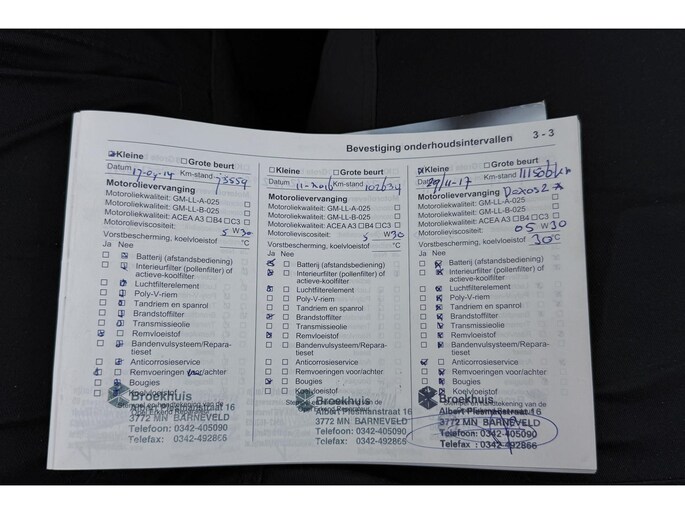 Bevestiging onderhoudsintervallen 3 - 3
Kleine Grote beurt
Datum 17-04-14 Km-stand 73559
Motorolievervanging
Motoroliekwaliteit: GM-LL-A-025
Motoroliekwaliteit: GM-LL-B-025
Motoroliekwaliteit: ACEA A3 B4 C3
Motorolieviscositeit: 5 W 30
Vorstbescherming, koelvloeistof °C
Ja Nee
Batterij (afstandsbediening)
Interieurfilter (pollenfilter) of
actieve-koolfilter
Luchtfilterelement
Poly-V-riem
Tandriem en spanrol
Brandstoffilter
Transmissieolie
Remvloeistof
Bandenvulsysteem/Repara-
tieset
Anticorrosieservice
Remvoeringen voor/achter
Bougies
Koelvloeistof
Broekhuis
Albert Plesmanstraat 16
3772 MN BARNEVELD
Telefoon: 0342-405090
Telefax: 0342-492866
Kleine Grote beurt
Datum Km-stand 102634
Motorolievervanging
Motoroliekwaliteit: GM-LL-A-025
Motoroliekwaliteit: GM-LL-B-025
Motoroliekwaliteit: ACEA A3 B4 C3
Motorolieviscositeit: 5 W 30
Vorstbescherming, koelvloeistof °C
Ja Nee
Batterij (afstandsbediening)
Interieurfilter (pollenfilter) of
actieve-koolfilter
Luchtfilterelement
Poly-V-riem
Tandriem en spanrol
Brandstoffilter
Transmissieolie
Remvloeistof
Bandenvulsysteem/Repara-
tieset
Anticorrosieservice
Remvoeringen voor/achter
Bougies
Koelvloeistof
Broekhuis
Albert Plesmanstraat 16
3772 MN BARNEVELD
Telefoon: 0342-405090
Telefax: 0342-492866
Kleine Grote beurt
Datum 29/11-17 Km-stand
Motorolievervanging Dexos 2
Motoroliekwaliteit: GM-LL-A-025
Motoroliekwaliteit: GM-LL-B-025
Motoroliekwaliteit: ACEA A3 B4 C3
Motorolieviscositeit: 05 W 30
Vorstbescherming, koelvloeistof 30 °C
Ja Nee
Batterij (afstandsbediening)
Interieurfilter (pollenfilter) of
actieve-koolfilter
Luchtfilterelement
Poly-V-riem
Tandriem en spanrol
Brandstoffilter
Transmissieolie
Remvloeistof
Bandenvulsysteem/Repara-
tieset
Anticorrosieservice
Remvoeringen voor/achter
Bougies
Koelvloeistof
Broekhuis
Albert Plesmanstraat 16
3772 MN BARNEVELD
Telefoon: 0342-405090
Telefax : 0342-492866